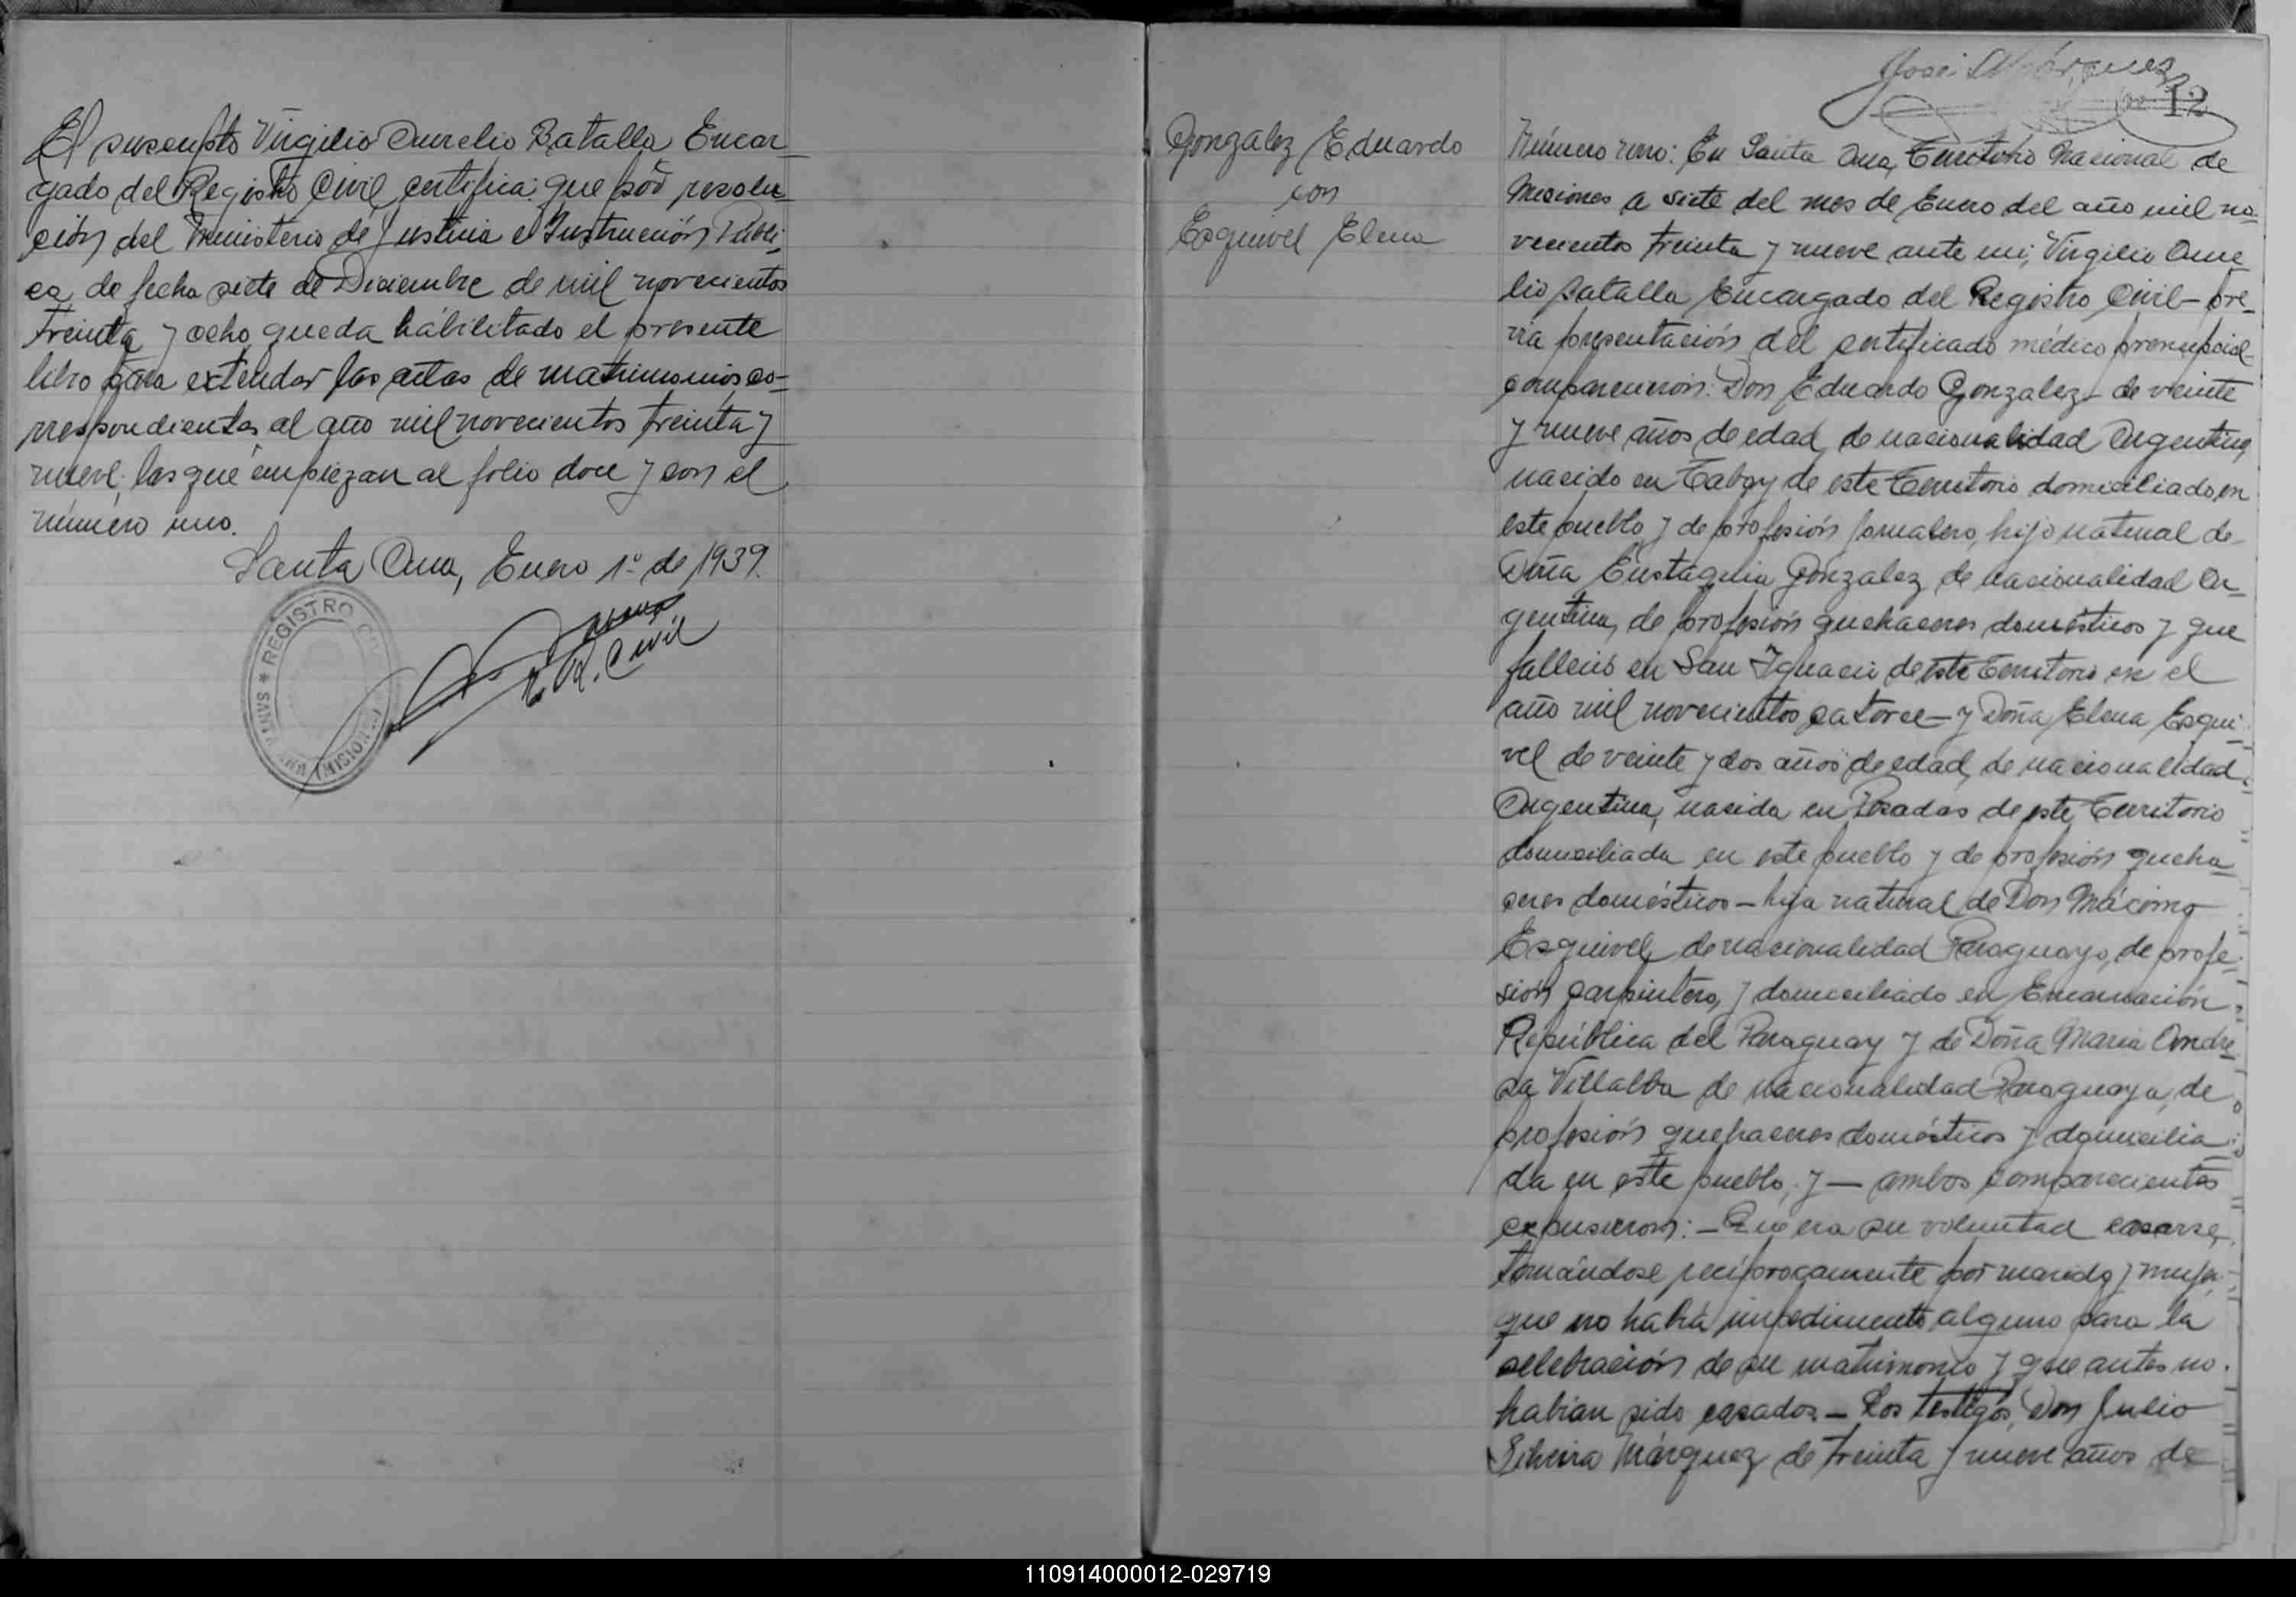 El suscripto Virgilio Aurelio Batalla Encar-
gado del Registro Civil, certifica: que por resolu-
ción del Ministerio de Justicia e Instrucción Públi-
ca de fecha siete de Diciembre de mil novecientos
treinta y ocho queda habilitado el presente
libro para extender las actas de matrimonios co-
rrespondientes al año mil novecientos treinta y
nueve; las que empiezan al folio doce y con el
número uno.
Santa Ana, Enero 1º de 1939.
* REGISTRO CIVIL * SANTA ANA (MISIONES)
E. R. Civil
José Márquez
12
Gonzalez Eduardo
con
Esquivel Elena
Número uno: En Santa Ana, Territorio Nacional de
Misiones a siete del mes de Enero del año mil no-
vecientos treinta y nueve ante mi, Virgilio Aure-
lio Batalla Encargado del Registro Civil - pre-
via presentación del certificado médico prenupcial-
comparecieron: Don Eduardo Gonzalez - de veinte
y nueve años de edad, de nacionalidad Argentina,
nacido en Cabay de este Territorio domiciliado en
este pueblo y de profesión jornalero, hijo natural de
Doña Eustaquia Gonzalez de nacionalidad Ar-
gentina, de profesión quehaceres domésticos y que
falleció en San Ignacio de este Territorio en el
año mil novecientos catorce - y Doña Elena Esqui-
vel de veinte y dos años de edad, de nacionalidad
Argentina, nacida en Posadas de este Territorio
domiciliada en este pueblo y de profesión queha-
ceres domésticos - hija natural de Don Mácimo
Esquivel, de nacionalidad Paraguayo, de profe-
sión carpintero, y domiciliado en Encarnación
República del Paraguay y de Doña Maria Andre-
sa Villalba de nacionalidad Paraguaya, de
profesión quehaceres domésticos y domicilia-
da en este pueblo, y - ambos comparecientes
expusieron: - Que era su voluntad casarse,
tomándose recíprocamente por marido y mujer
que no había impedimento alguno para la
celebración de su matrimonio y que antes no
habian sido casados. - Los testigos, Don Julio
Silveira Márquez de treinta y nueve años de
110914000012-029719